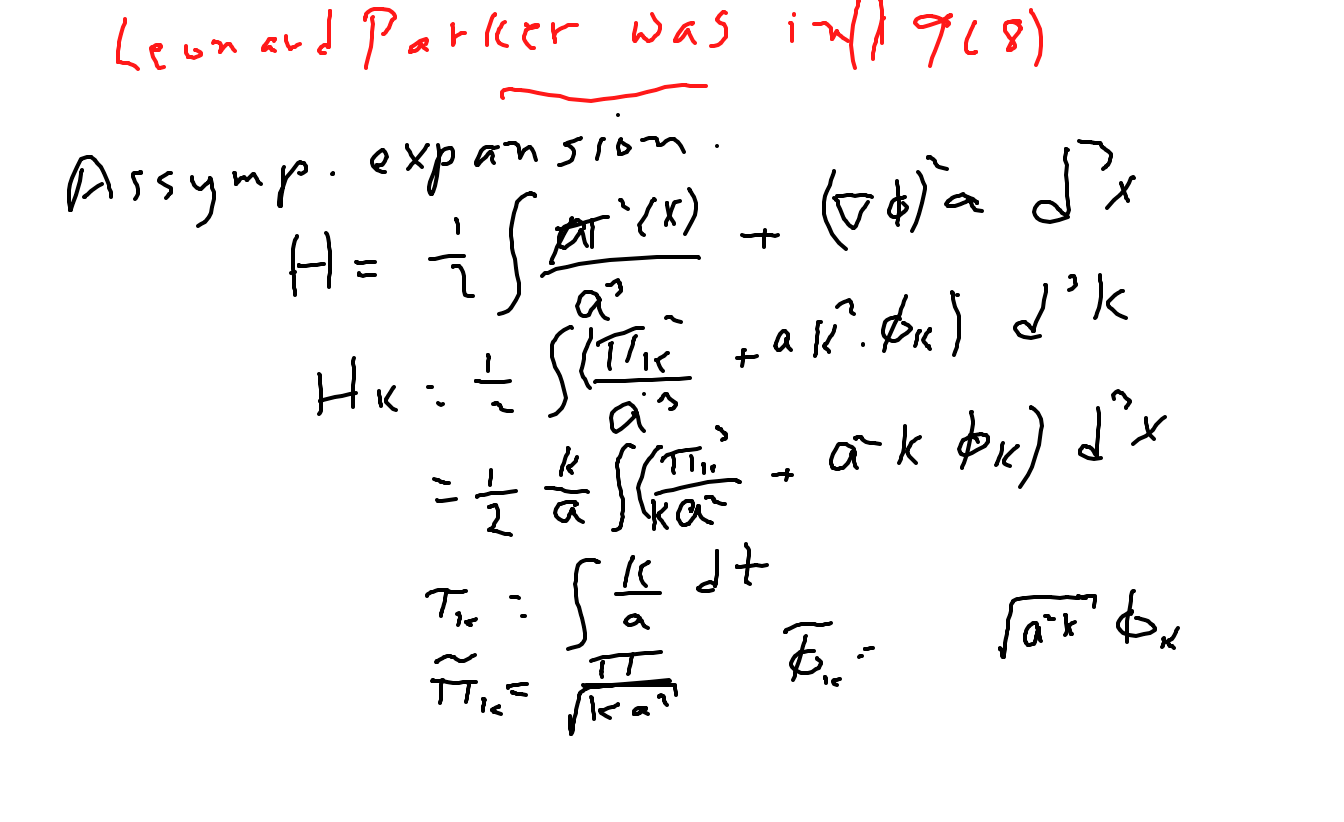 Leonard Parker was in (1968)
Assymp. expansion.
H = 1/2 ∫ π²(x)/a³ + (∇φ)² a d³x
H_K = 1/2 ∫ (Π_K²/a³ + a k² · φ_K) d³k
= 1/2 k/a ∫ (Π_K²/ka² + a² k φ_K) d³x
T_K = ∫ k/a dt
Π̃_K = Π/√(ka²) φ̅_K = √(a²k) φ_K